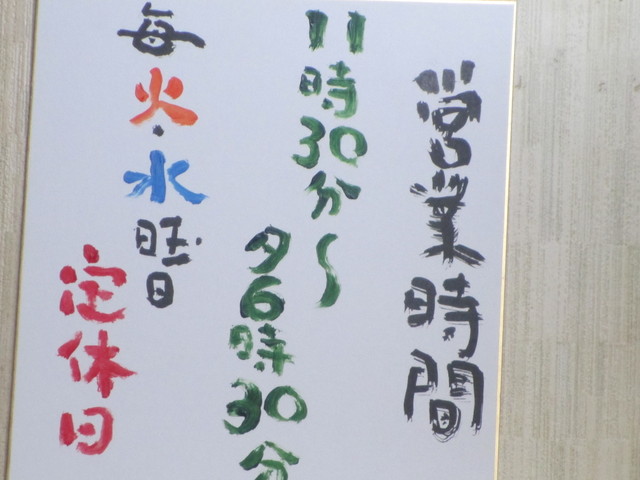 営業時間
11時30分〜
夕6時30分
毎火・水曜日
定休日